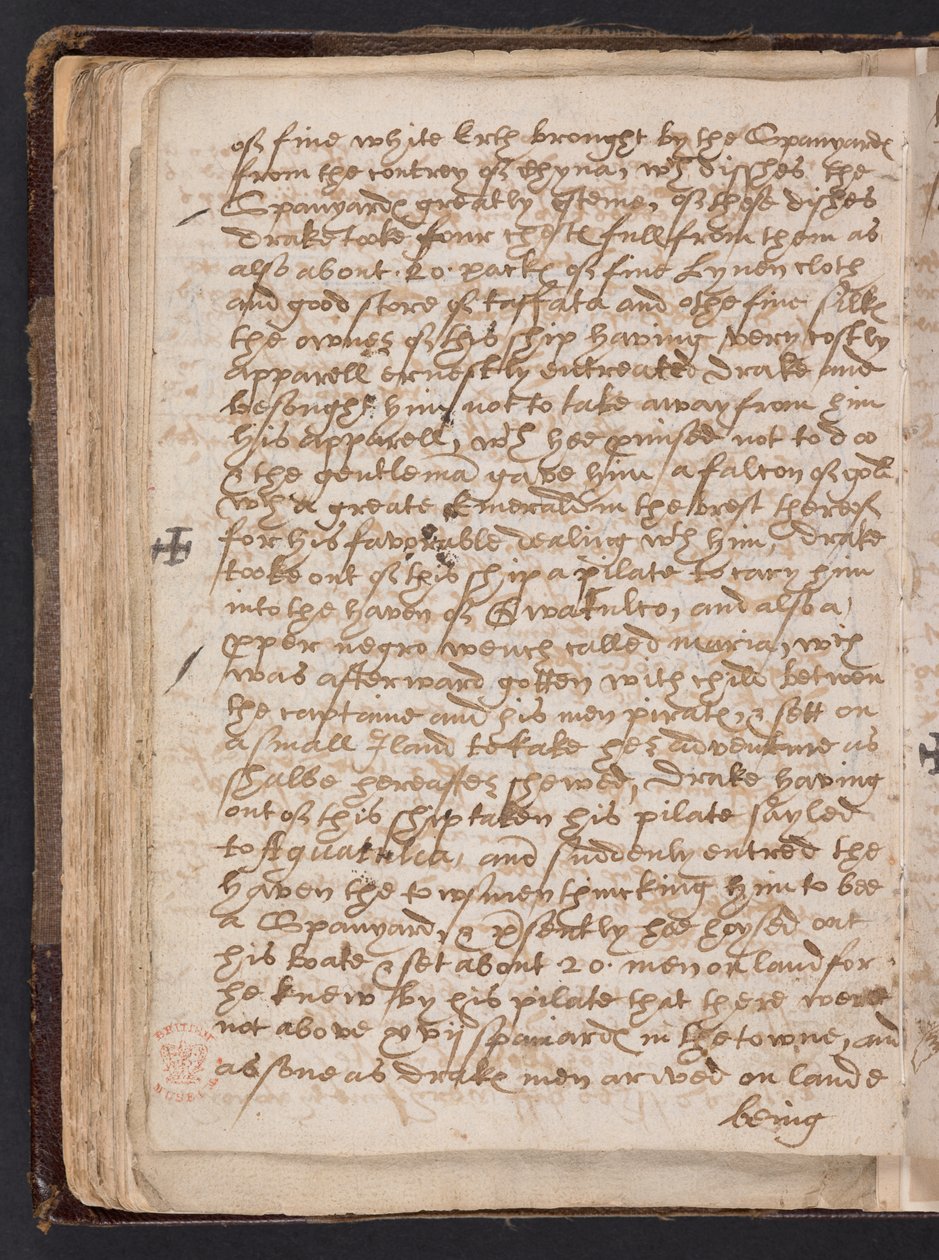 of fine white erth brought by the Spanyards
from the contrey of Chyna, wch disshes the
Spanyards greatly esteme, of these dishes
drake tooke four chests full from them as
also about .20. packs of fine Lynen cloth
and good store of taffata and othe fine silks
the owner of this ship having very costly
apparell ernestly entreated drake and
besought him not to take away from him
his apparell, wch hee promised not to doo
& the gentlema gave him a falcon of gold
wth a greate Emerald in the brest thereof
for his favorable dealing wth him, drake
tooke out of this ship a pilate to cary him
into the haven of Gwatulco, and also a
proper negro wench called maria, wch
was afterward gotten with child betwen
the captaine and his men pirats, & sett on
a small Iland to take her adventure as
shalbe hereafter shewed, drake having
out of this ship taken his pilate sayled
to Aguatulca, and suddenly entred the
haven the townsmen thincking him to bee
a Spanyard, & presently hee hoysed oat
his boate & set about 20. men on land for
he knew by his pilate that there were
not above xvij spaniards in the towne, and
as sone as drakes men arived on lande
being
BRITISH
MUSEUM